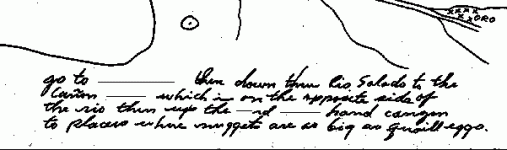 xxxx
xxORO
go to ________ then down thru Rio Salado to the
Cañon ____ which is on the opposite side of
the rio then up the ____ hand canyon
to placers where nuggets are as big as quaill eggs.